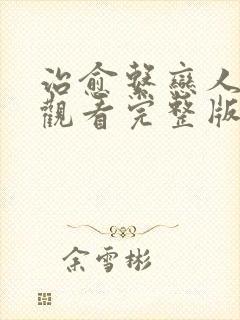 治愈繫戀人
觀看完整版
余雪彬